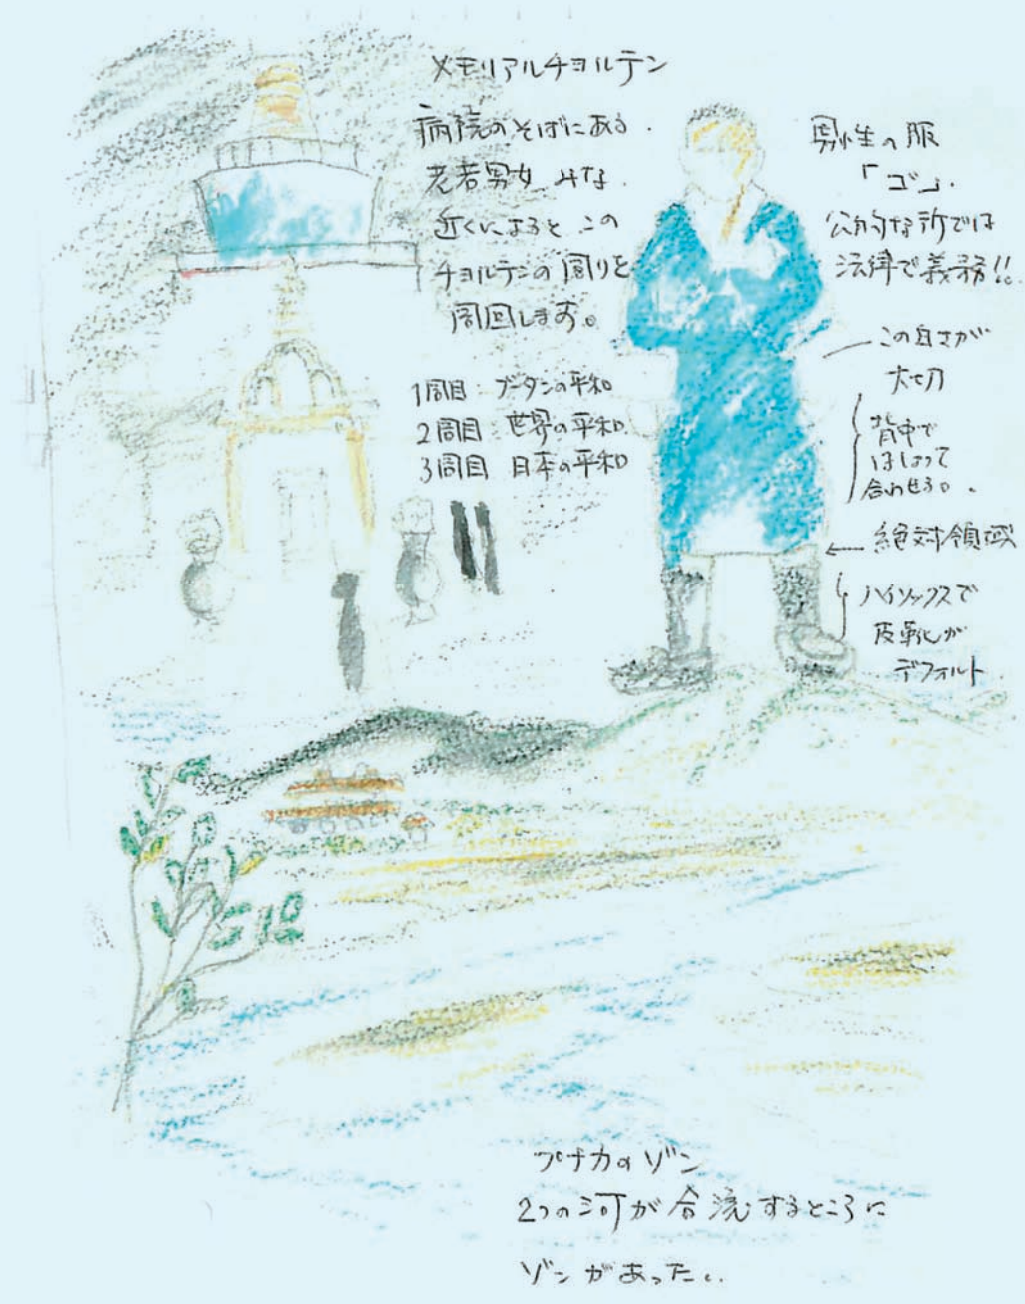 メモリアルチョルテン
病院のそばにある.
老若男女 みな.
近くによると この
チョルテンの周りを
周回します。
1周目:ブータンの平和
2周目:世界の平和.
3周目 日本の平和
男性の服
「ゴ」.
公的な所では
法律で義務!!
この白さが
大切
背中で
はしょって
合わせる。.
絶対領域
ハイソックスで
皮靴が
デフォルト
プナカのゾン
2つの河が合流するところに
ゾンがあった.